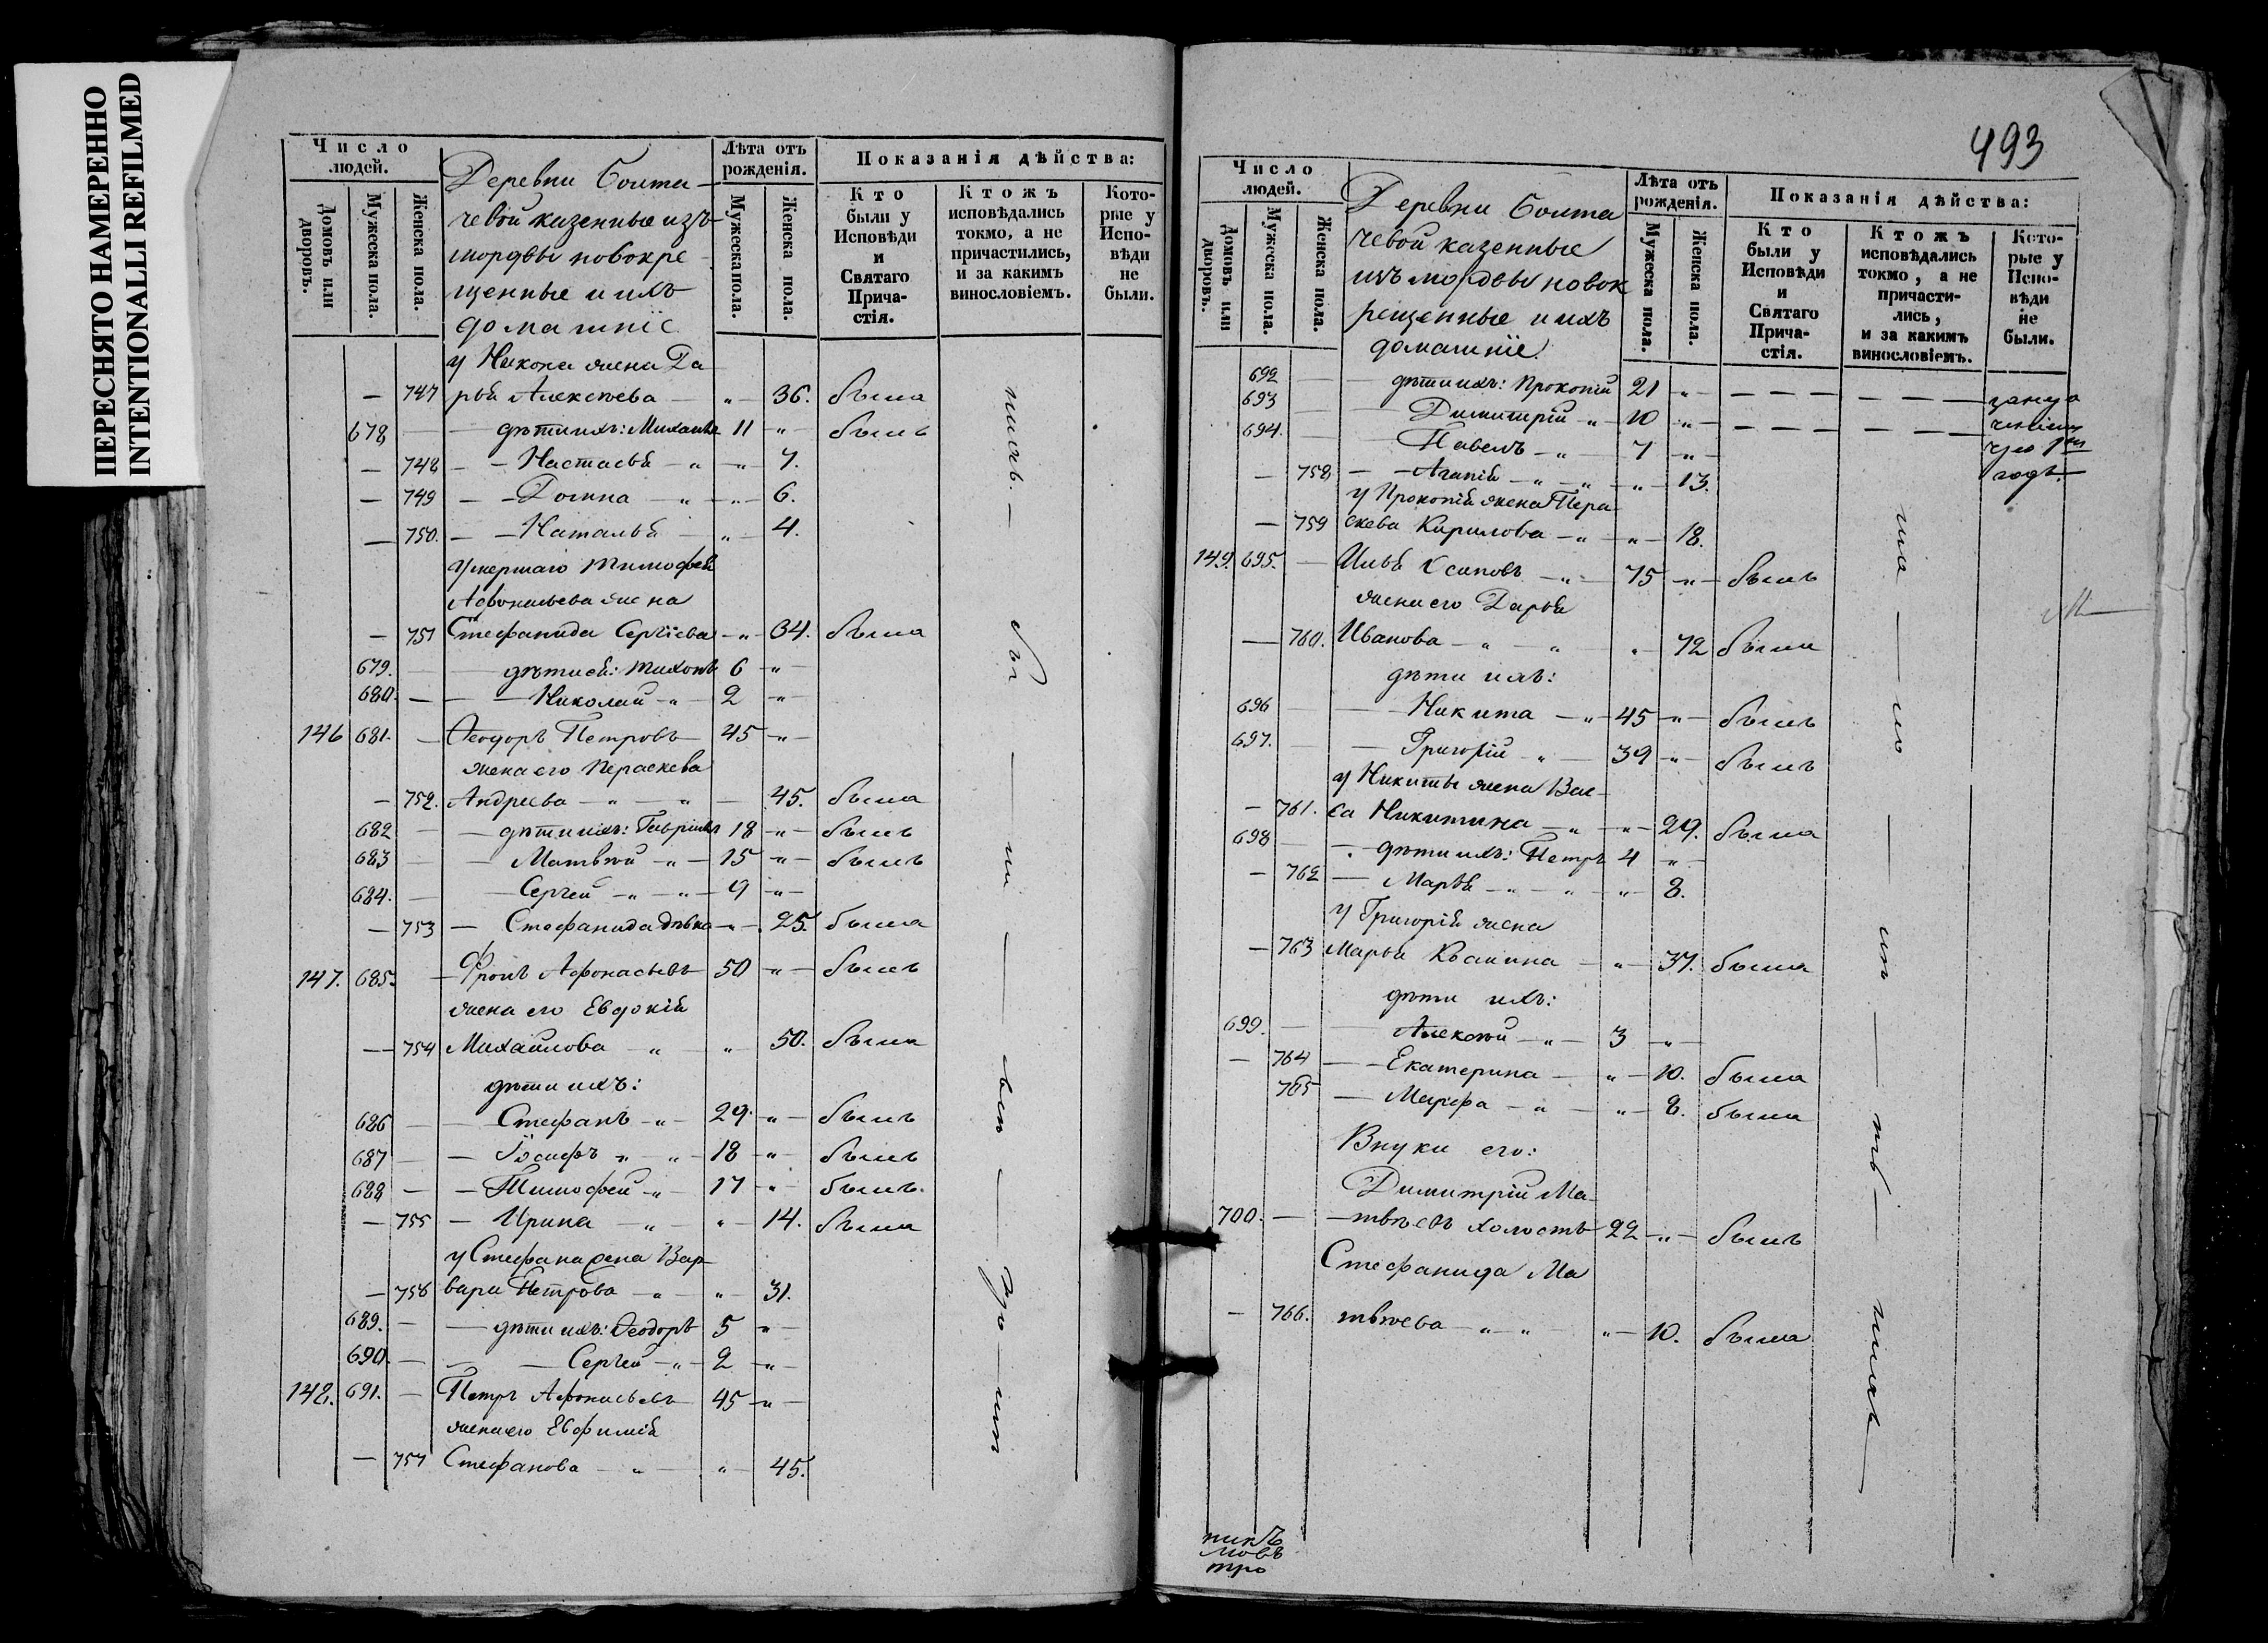 ПЕРЕСНЯТО НАМЕРЕННО
INTENTIONALLI REFILMED
Число людей.
Домовъ или дворовъ.
Мужеска пола.
Женска пола.
Деревни
чевой казенные изъ
мордвы новокре
щенные и ихъ
домашніе
Лѣта отъ рожденія.
Мужеска пола.
Женска пола.
Показанія дѣйства:
Кто были у Исповѣди и Святаго Причастія.
Ктожъ исповѣдались токмо, а не причастились, и за какимъ винословіемъ.
Которые у Исповѣди не были.
у Никона жена Да
— 747 рья Алексѣева — „ — 36. была
678 — — дѣти ихъ: Михаилъ 11 „ — былъ
— 748 — — Настасья — „ — „ — 7.
— 749 — — Домна — „ — „ — 6.
— 750. — — Наталья — „ — 4.
Умершаго Тимофея
Афонасьева жена
— 751 Стефанида Сергіева — „ — 34. была
679. — — дѣти ея: Тихонъ 6 „ —
680. — — — Николай — „ — 2 „ —
146 681. — Ѳеодоръ Петровъ 45 — „ —
жена его Параскева
— 752. Андреева — „ — „ — 45. была
682 — — дѣти ихъ: Гавріилъ 18 — „ — былъ
683 — — Матвѣй — „ — 15 — „ — былъ
684. — — Сергей — „ — „ — 9 — „ —
— 753 — Стефанида дѣвка — „ — 25. была
147. 685. — Фролъ Афонасьевъ 50 — „ — былъ
жена его Евдокія
— 754 Михайлова — „ — „ 50. была
дѣти ихъ:
686 — — Стефанъ — „ — 29. — „ — былъ
687 — — Іосифъ „ — „ — 18 — „ — былъ
688 — — Тимофей — „ — 17 — „ — былъ.
— 755 — Ирина — „ — „ — 14. была
у Стефана жена Вар
— 756 вара Петрова — „ — „ — 31.
689. — — дѣти ихъ: Ѳеодоръ 5 „ —
690. — — — Сергей — „ — 2 — „ —
148. 691. — Петръ Афонасьевъ 45 — „ —
жена его Евфимія
— 757 Стефанова — „ — „ — 45.
493
Число людей.
Домовъ или дворовъ.
Мужеска пола.
Женска пола.
Деревни
чевой казенные
изъ мордвы новок
рещенные и ихъ
домашніе
Лѣта отъ рожденія.
Мужеска пола.
Женска пола.
Показанія дѣйства:
Кто были у Исповѣди и Святаго Причастія.
Ктожъ исповѣдались токмо, а не причастились, и за какимъ винословіемъ.
Которые у Исповѣди не были.
692 — — дѣти ихъ: Прокопій 21 „ —
693 — — Димитрій „ — 10 „ —
694. Павелъ — „ — 7 — „ —
— 758 — — Агапія — „ — „ — „ — 13.
у Прокопія жена Пара
— 759 скева Кирилова — „ — „ — 18.
149. 695. — Илья Осиповъ — „ — 75 — „ — былъ
жена его Дарья
— 760. Иванова — „ — „ „ — 72 была
дѣти ихъ:
696 — — Никита — „ — 45 — „ — былъ
697. — — Григорій „ — 39 „ — былъ
у Никиты жена Вас
— 761. са Никитина — „ — „ — 29. была
698 — — дѣти ихъ: Петръ 4 „ —
— 762 — Марья — „ — „ — „ — 8.
у Григорія жена
— 763 Марья — „ — 37. была
дѣти ихъ:
699. — — Алексѣй — „ — 3 — „ —
— 764 — — Екатерина — „ — 10. была
765 — Марфа — „ — „ — 8. была
Внуки его:
Димитрій Ма
700. — — твѣевъ холостъ 22 — „ — былъ
Стефанида Ма
— 766. твѣева — „ — „ „ — 10. была